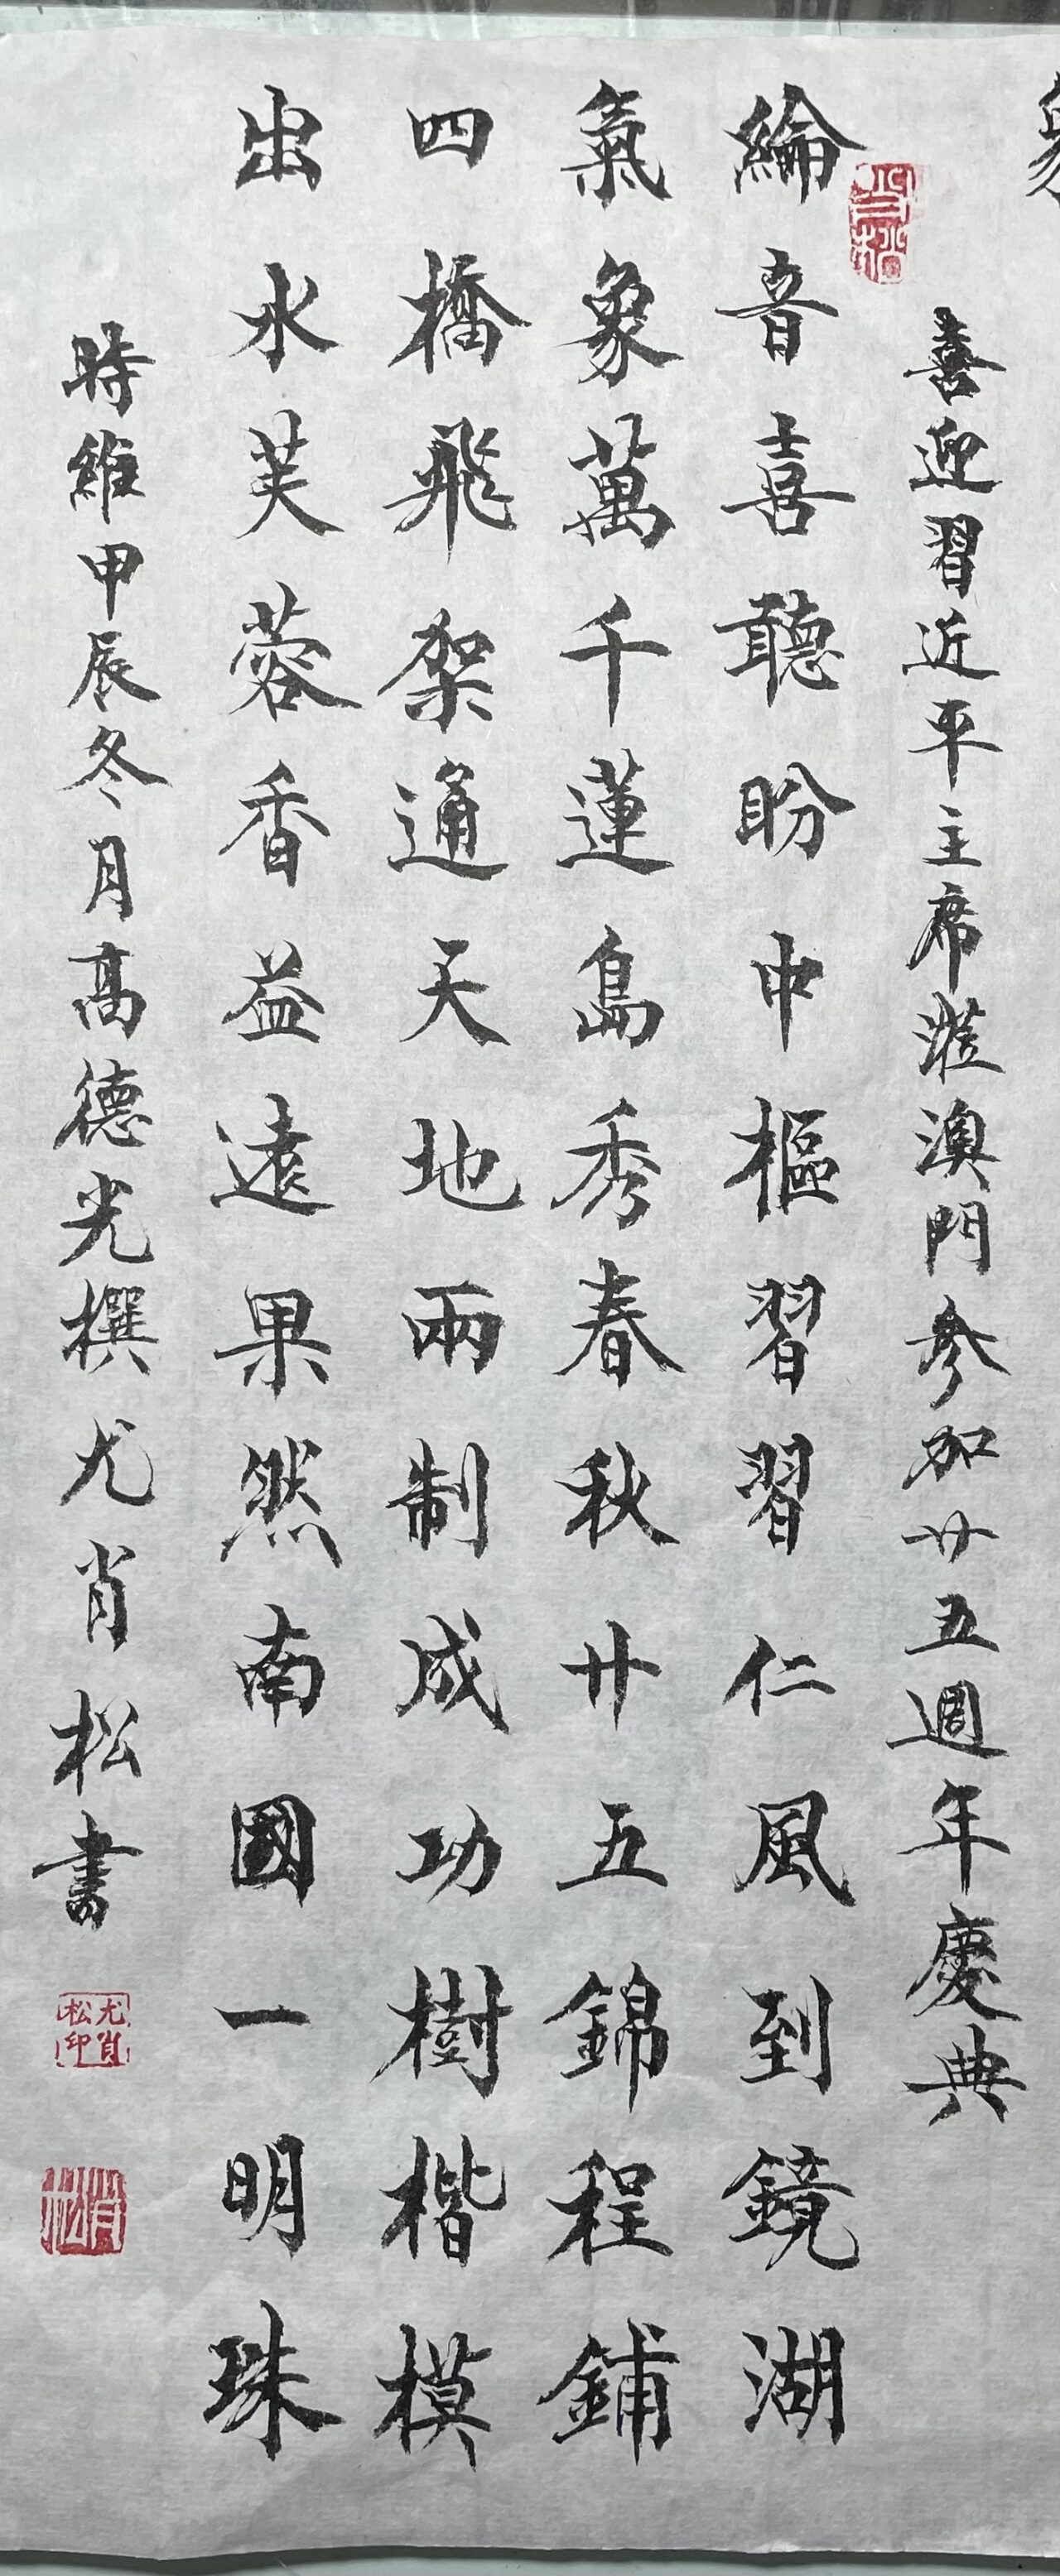 喜迎習近平主席蒞澳門參加廿五週年慶典
綸音喜聽盼中樞習習仁風到鏡湖
氣象萬千蓮島秀春秋廿五錦程鋪
四橋飛架通天地兩制成功樹楷模
出水芙蓉香益遠果然南國一明珠
時維甲辰冬月高德光撰尤肖松書
尤肖松印
肖松